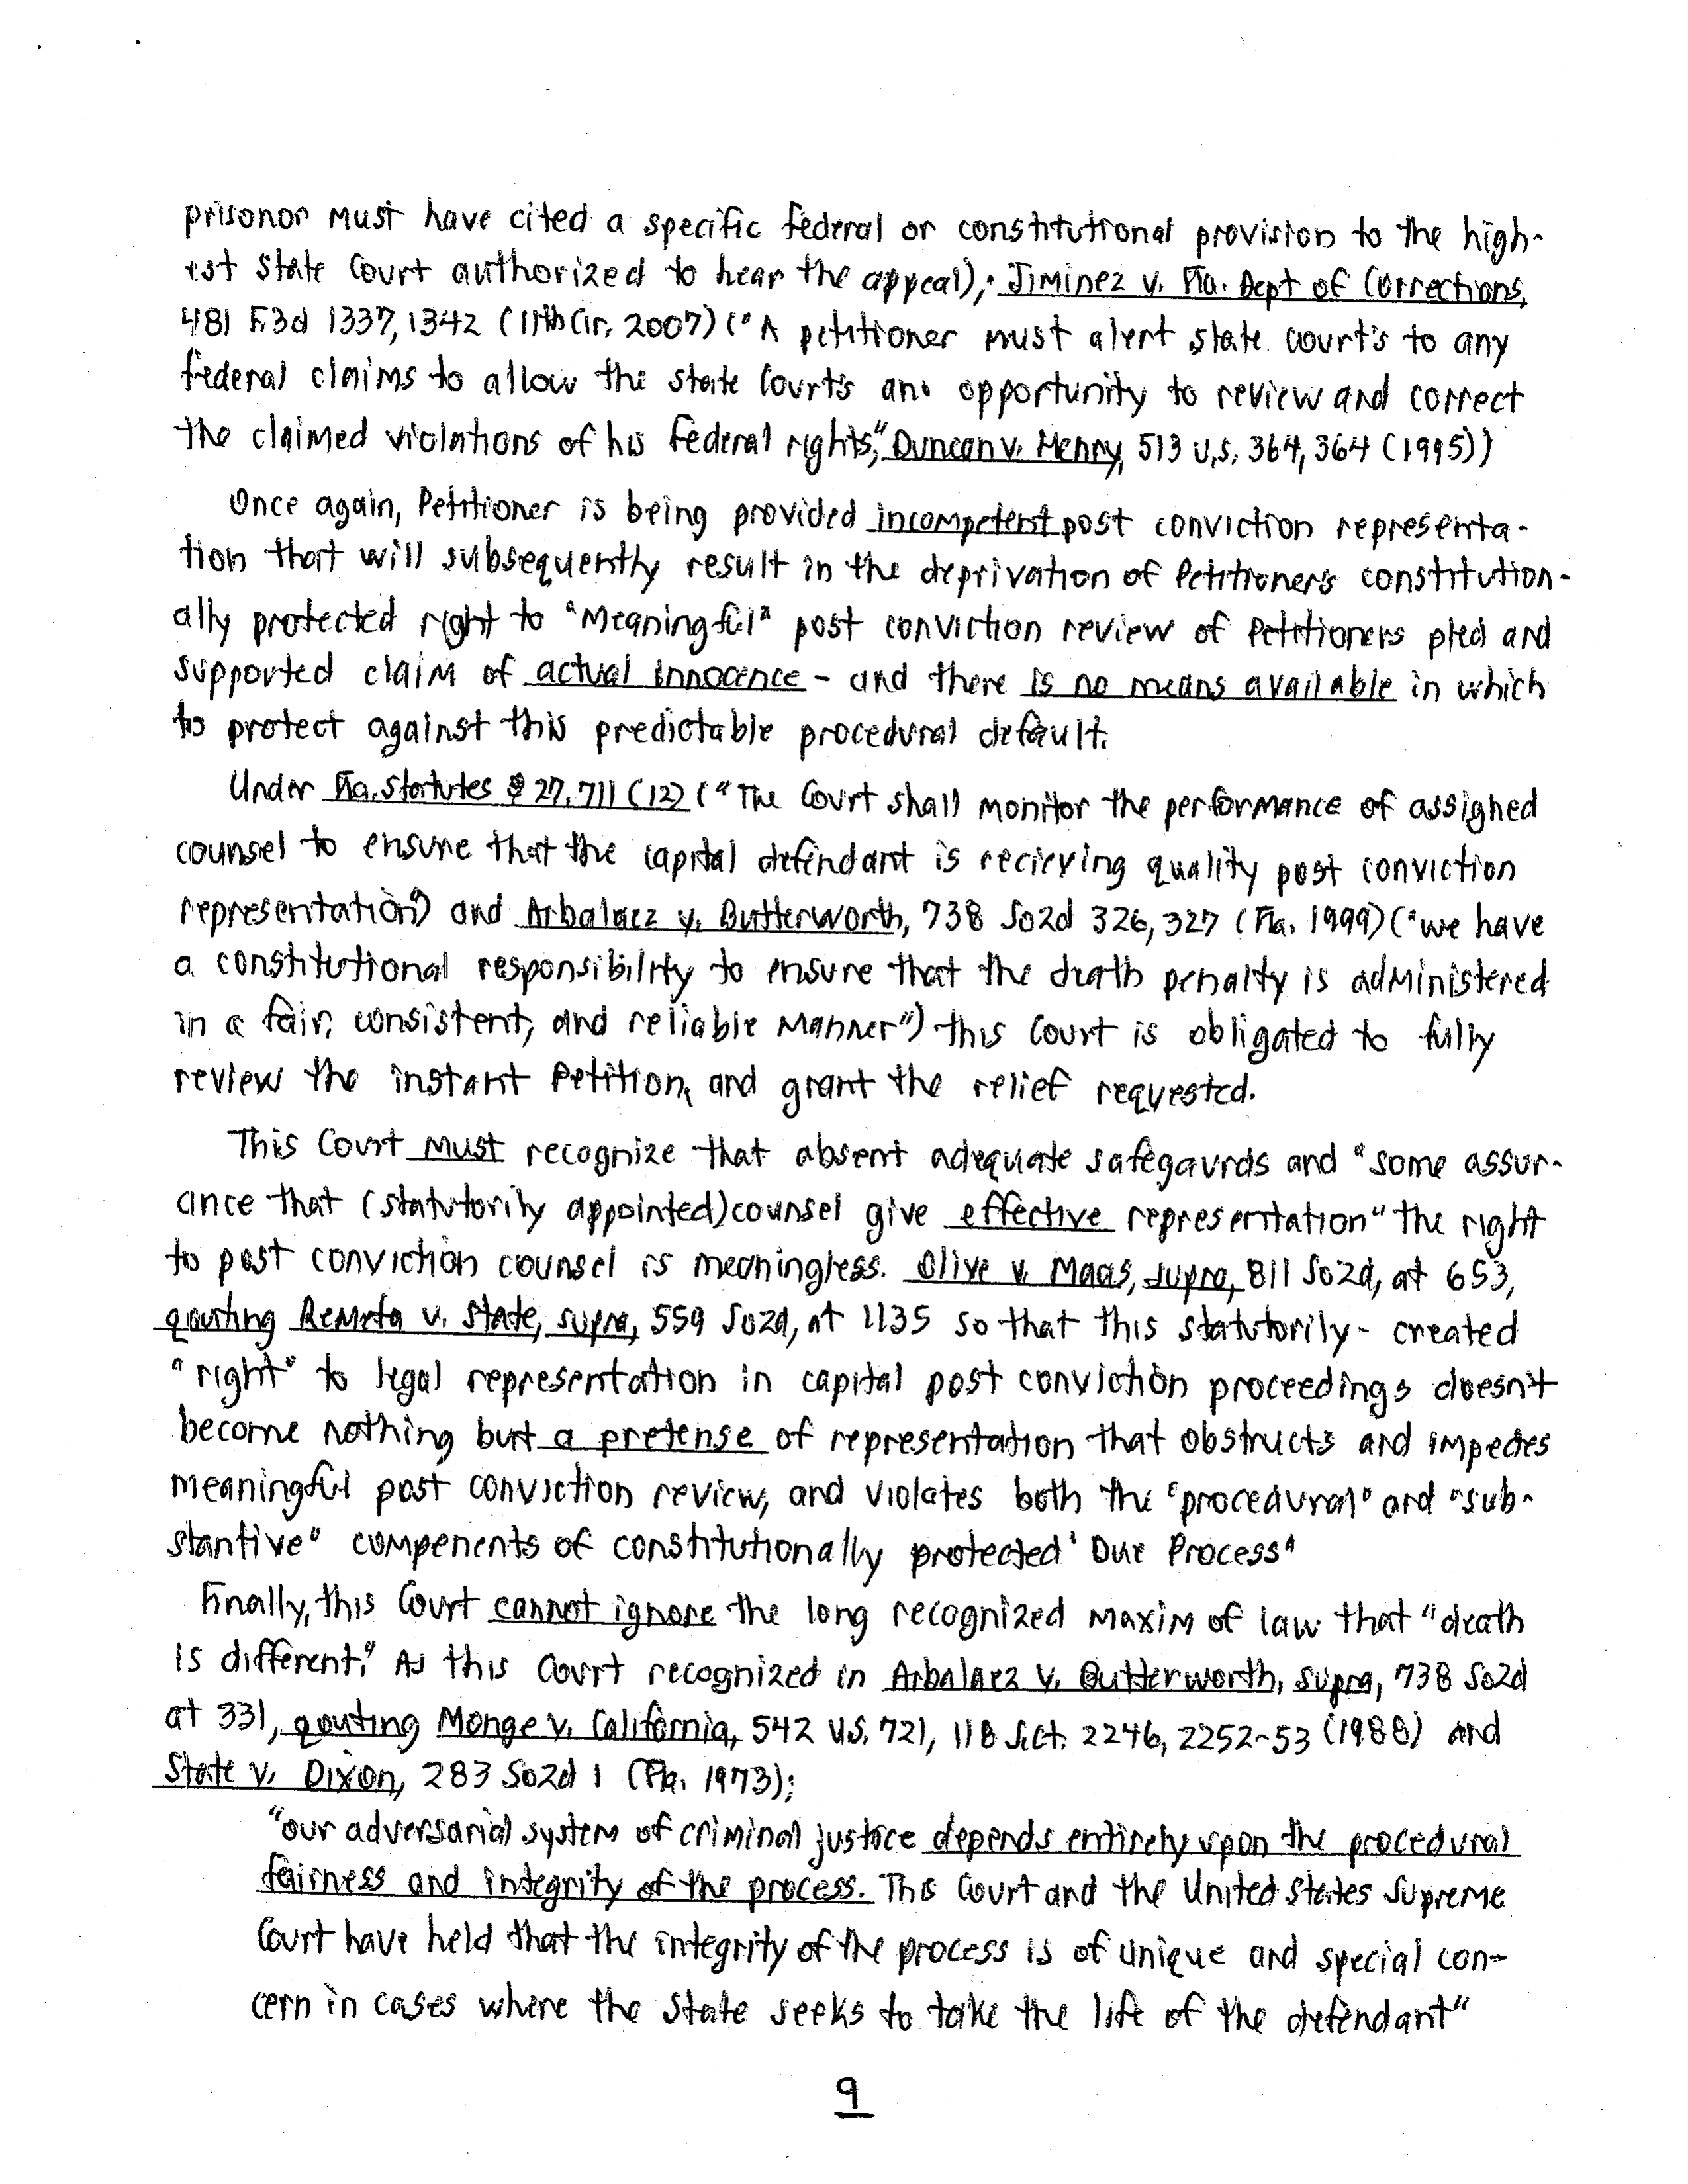 prisonor must have cited a specific federal or constitutional provision to the high-
est State Court authorized to hear the appeal); Jiminez v. Fla. Dept of Corrections,
481 F.3d 1337, 1342 (11th Cir. 2007) ("A petitioner must alert state court's to any
federal claims to allow the state court's an opportunity to review and correct
the claimed violations of his federal rights," Duncan v. Henry, 513 U.S. 364, 364 (1995))
Once again, Petitioner is being provided incompetent post conviction representa-
tion that will subsequently result in the deprivation of Petitioner's constitution-
ally protected right to "Meaningful" post conviction review of Petitioners pled and
supported claim of actual innocence - and there is no means available in which
to protect against this predictable procedural default.
Under Fla. Statutes § 27.711 (12) ("The Court shall monitor the performance of assighed
counsel to ensure that the capital defendant is recieving quality post conviction
representation") and Arbalaez v. Butterworth, 738 So2d 326, 327 (Fla. 1999) ("we have
a constitutional responsibility to ensure that the death penalty is administered
in a fair, consistent, and reliable manner") this Court is obligated to fully
review the instant Petition, and grant the relief requested.
This Court must recognize that absent adequate safegaurds and "some assur-
ance that (statutorily appointed) counsel give effective representation" the right
to post conviction counsel is meaningless. Olive v. Maas, supra, 811 So2d, at 653,
qouting Remeta v. State, supra, 559 So2d, at 1135 so that this statutorily-created
"right" to legal representation in capital post conviction proceedings doesn't
become nothing but a pretense of representation that obstructs and impedes
meaningful post conviction review, and violates both the "procedural" and "sub-
stantive" compenents of constitutionally protected "Due Process"
Finally, this Court cannot ignore the long recognized maxim of law that "death
is different." As this Court recognized in Arbalaez v. Butterworth, supra, 738 So2d
at 331, qouting Monge v. California, 542 U.S. 721, 118 S.Ct. 2246, 2252-53 (1988) and
State v. Dixon, 283 So2d 1 (Fla. 1973);
"our adversarial system of criminal justice depends entirely upon the procedural
fairness and integrity of the process. This Court and the United States Supreme
Court have held that the integrity of the process is of unique and special con-
cern in cases where the State seeks to take the life of the defendant"
9